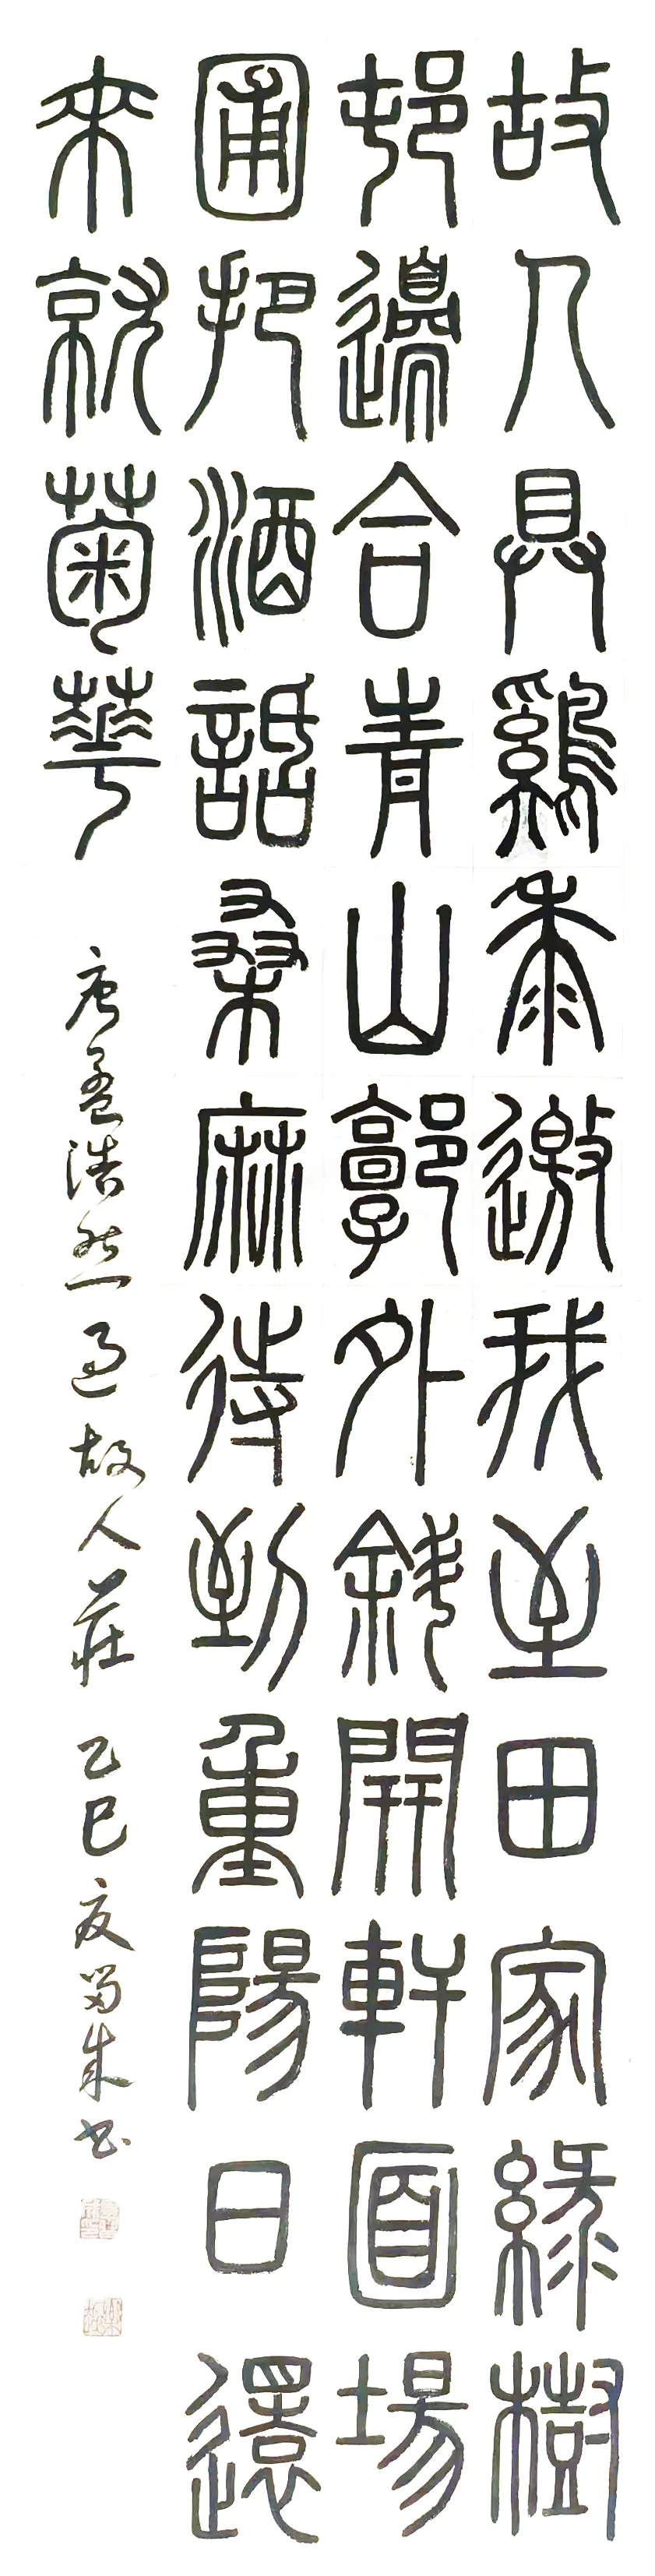 故人具鷄黍邀我至田家綠樹
邨邊合青山郭外斜開軒面場
圃把酒話桑麻待到重陽日還
來就菊華
唐孟浩然過故人莊 乙巳夏書